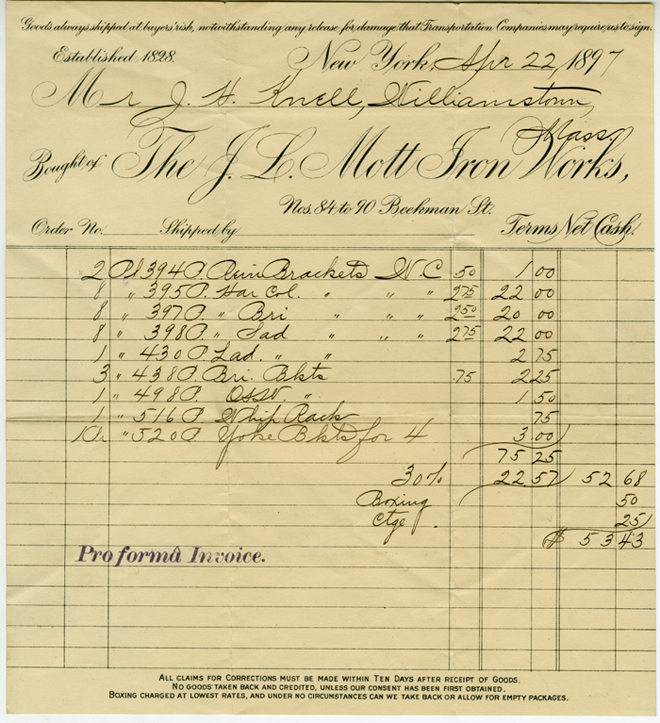 Goods always shipped at buyers' risk, notwithstanding any release for damage that Transportation Companies may require us to sign.
Established 1828. New York, Apr 22, 1897
Mr J. H. Knell, Williamstown,
Mass.
Bought of The J. L. Mott Iron Works,
Nos. 84 to 90 Beekman St.
Order No. Shipped by Terms Net Cash.
2 Pl 394 P. Brackets N.C .50 1 00
8 " 395 P. Har Col. " " " 2 75 22 00
8 " 397 P. " Bri " " " 2 50 20 00
8 " 398 P. " Sad " " " 2 75 22 00
1 " 430 P. Lad. " " 2 75
3 " 438 P. Bri. Bkts .75 2 25
1 " 498 P. " 1 50
1 " 516 P. Whip Rack 75
1 Pr " 520 P. Yoke Bkts for 4 3.00
75 25
30% 22 57 52 68
Boxing 50
Ctge. 25
$ 53 43
Pro forma Invoice.
ALL CLAIMS FOR CORRECTIONS MUST BE MADE WITHIN TEN DAYS AFTER RECEIPT OF GOODS.
NO GOODS TAKEN BACK AND CREDITED, UNLESS OUR CONSENT HAS BEEN FIRST OBTAINED.
BOXING CHARGED AT LOWEST RATES, AND UNDER NO CIRCUMSTANCES CAN WE TAKE BACK OR ALLOW FOR EMPTY PACKAGES.